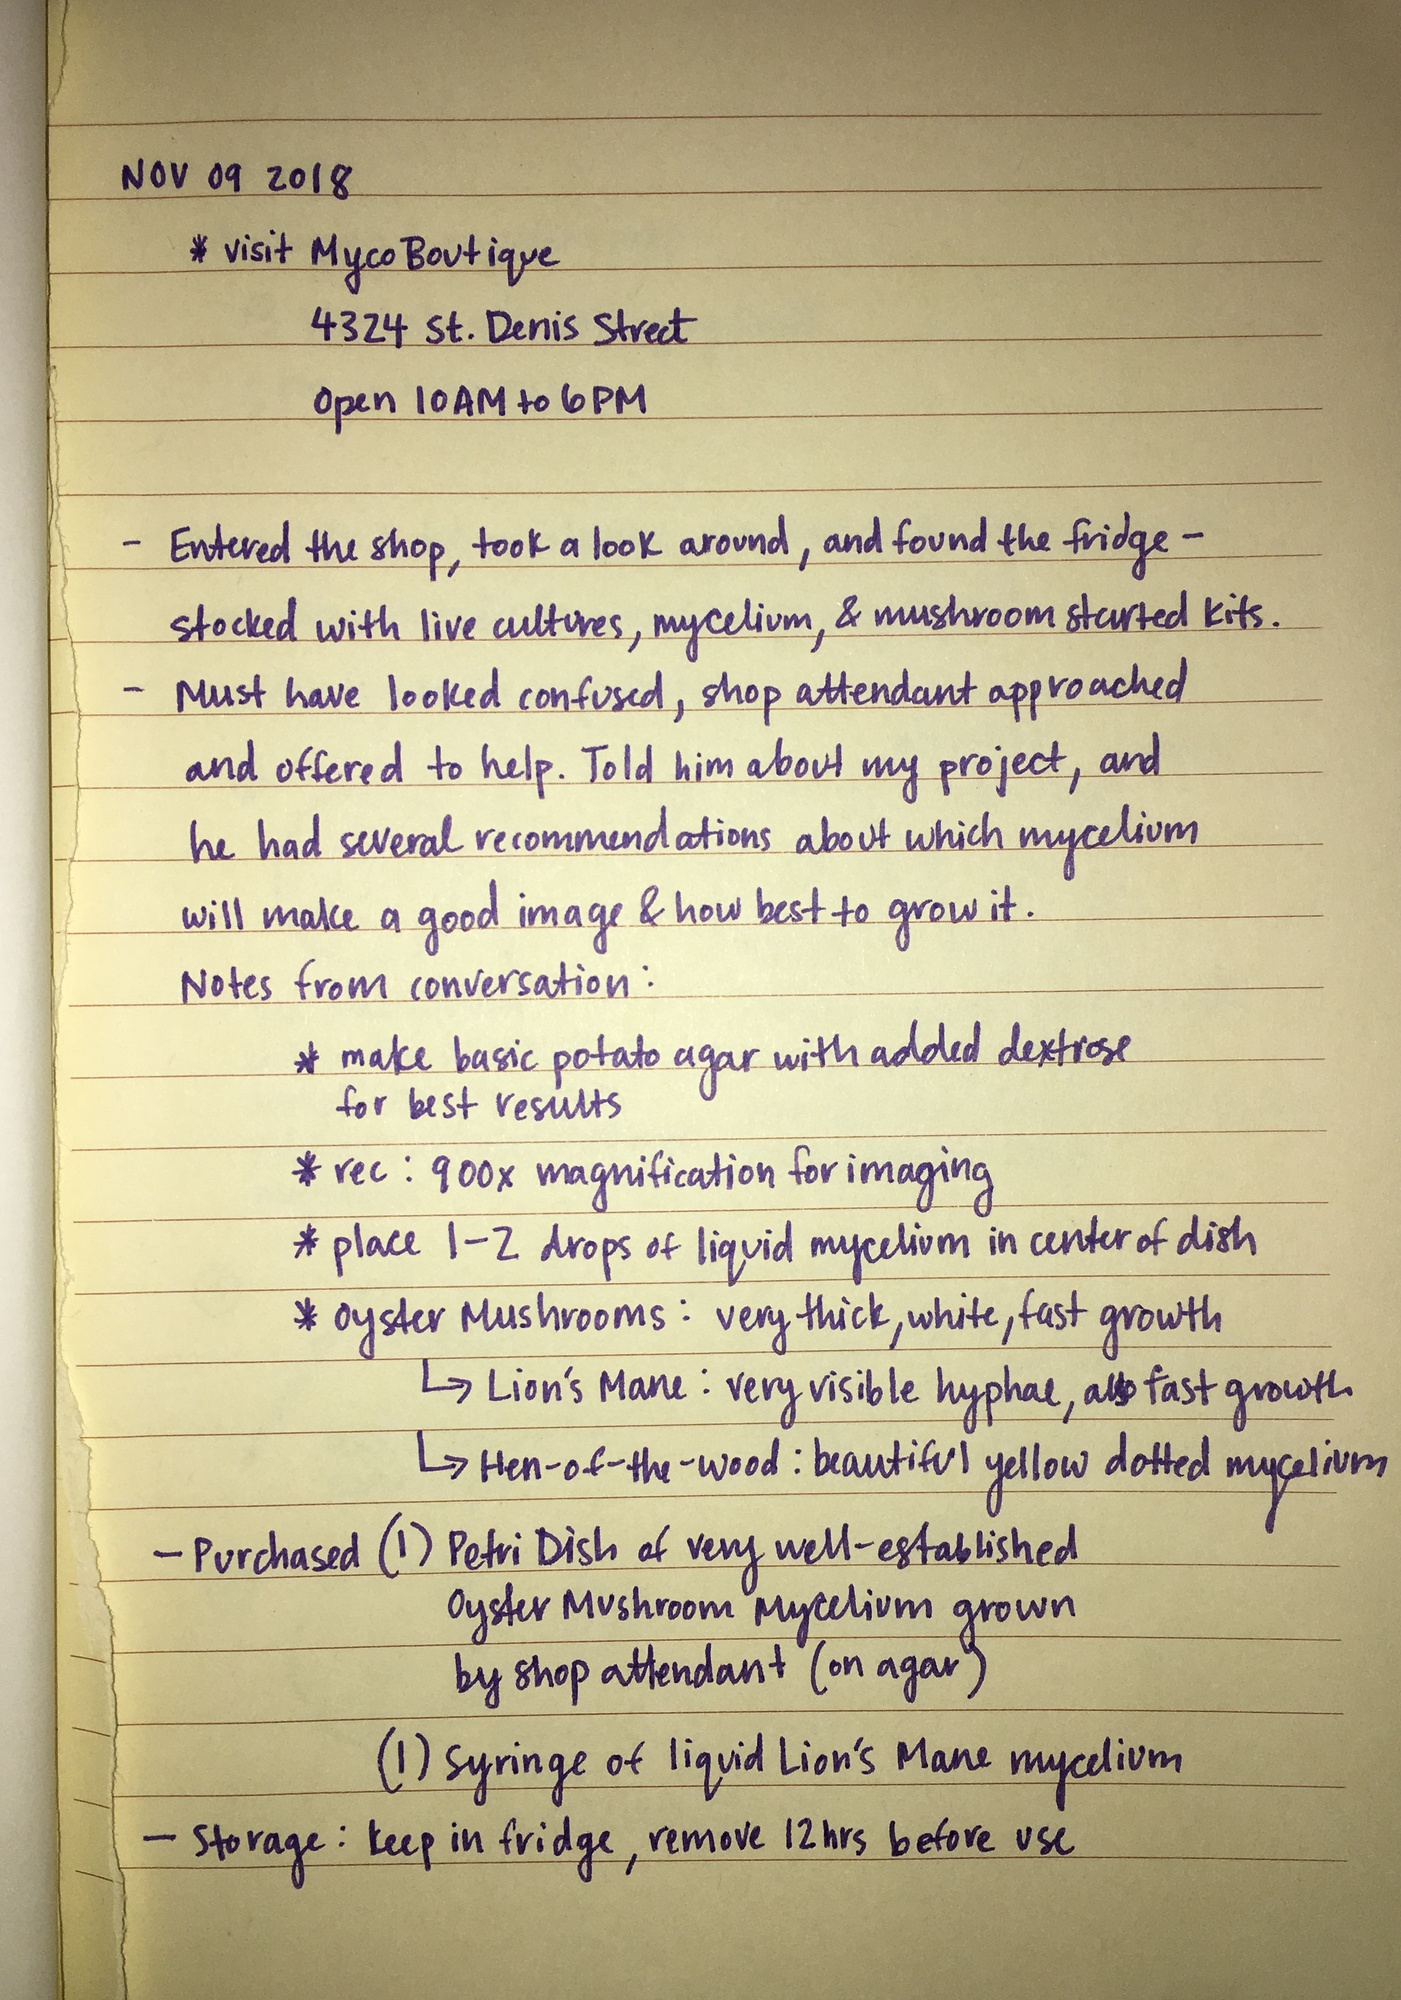 NOV 09 2018
* visit MycoBoutique
4324 St. Denis Street
Open 10AM to 6PM
- Entered the shop, took a look around, and found the fridge -
stocked with live cultures, mycelium, & mushroom started kits.
- Must have looked confused, shop attendant approached
and offered to help. Told him about my project, and
he had several recommendations about which mycelium
will make a good image & how best to grow it.
Notes from conversation:
* make basic potato agar with added dextrose
for best results
* rec: 900x magnification for imaging
* place 1-2 drops of liquid mycelium in center of dish
* Oyster Mushrooms: very thick, white, fast growth
↳ Lion's Mane: very visible hyphae, also fast growth
↳ Hen-of-the-wood: beautiful yellow dotted mycelium
- Purchased (1) Petri Dish of very well-established
Oyster Mushroom Mycelium grown
by shop attendant (on agar)
(1) Syringe of liquid Lion's Mane mycelium
- Storage: keep in fridge, remove 12hrs before use